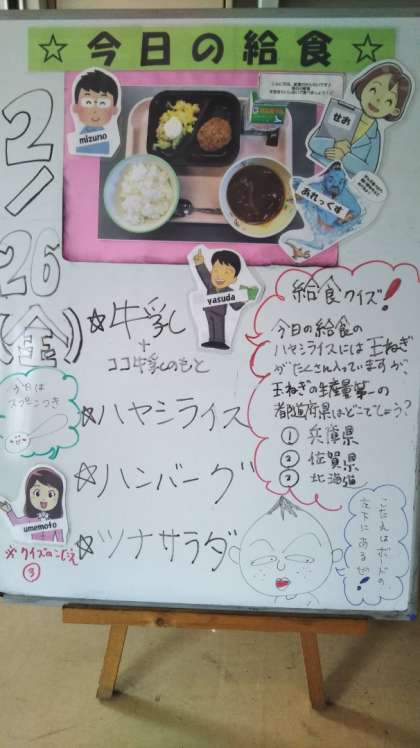 ☆今日の給食☆
mizuno
せお
あれっくす
yasuda
2/26(金)
☆牛乳
+
ココア牛乳のもと
☆ハヤシライス
☆ハンバーグ
☆ツナサラダ
今日は
スプーンつき
umemoto
※クイズのこたえ
③
給食クイズ!
今日の給食の
ハヤシライスには玉ねぎ
がたくさん入っていますが
玉ねぎの生産量第一の
都道府県はどこでしょう?
① 兵庫県
② 佐賀県
③ 北海道
こたえはボードの
左下にあるぜ!